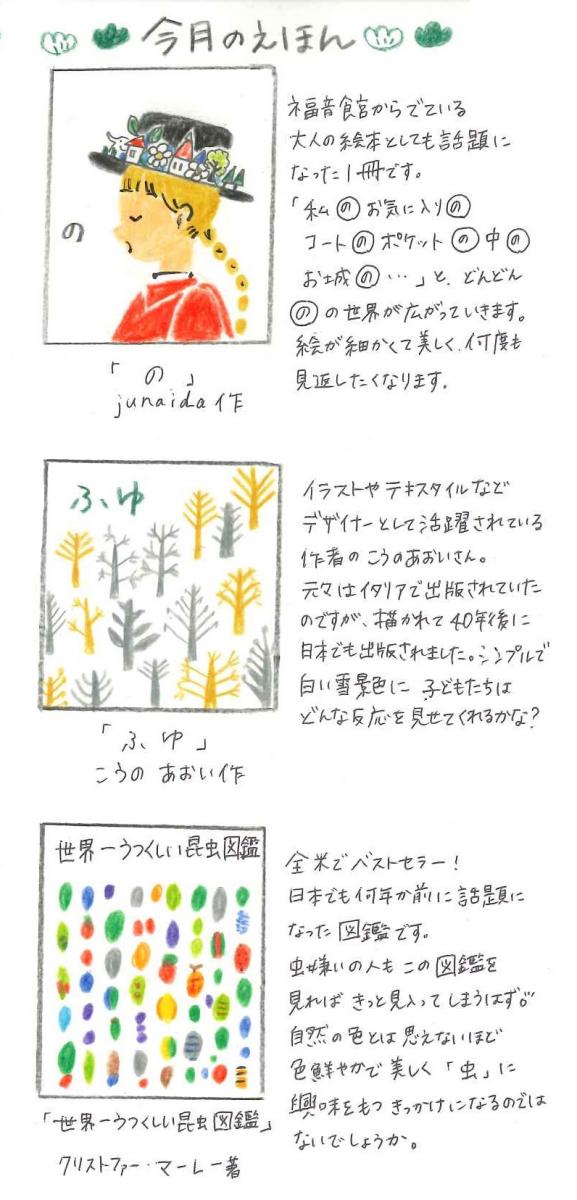 今月のえほん
の
「 の 」
junaida 作
福音館からでている
大人の絵本としても話題に
なった1冊です。
「私のお気に入りの
コートのポケットの中の
お城の…」と、どんどん
のの世界が広がっていきます。
絵が細かくて美しく、何度も
見返したくなります。
ふゆ
「ふゆ」
こうの あおい作
イラストやテキスタイルなど
デザイナーとして活躍されている
作者の こうのあおいさん。
元々はイタリアで出版されていた
のですが、描かれて40年後に
日本でも出版されました。シンプルで
白い雪景色に 子どもたちは
どんな反応を見せてくれるかな?
世界一うつくしい昆虫図鑑
「世界一うつくしい昆虫図鑑」
クリストファー・マーレー著
全米でベストセラー!
日本でも何年か前に話題に
なった図鑑です。
虫嫌いの人も この図鑑を
見れば きっと見入ってしまうはず。
自然の色とは思えないほど
色鮮やかで美しく「虫」に
興味をもつ きっかけになるのでは
ないでしょうか。